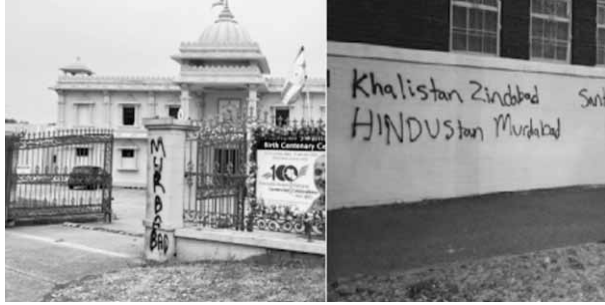 MURDABAD
Birth Centenary Ce
100
Khalistan Zindabad Sant
HINDUstan Murdabad